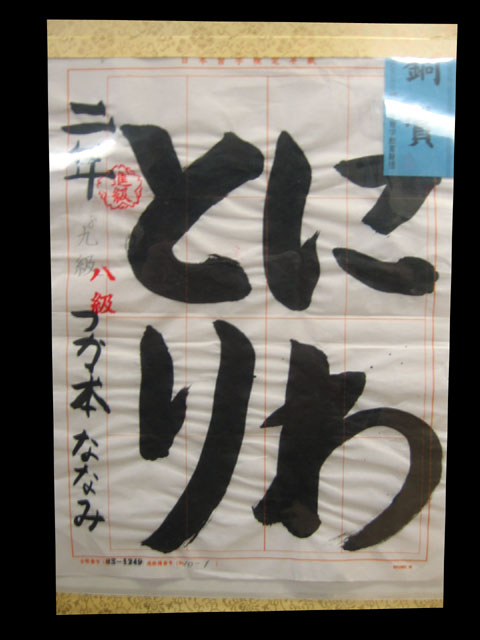 銅賞
にわ
とり
二年
進級
九級
八級
つか本ななみ
03-1249